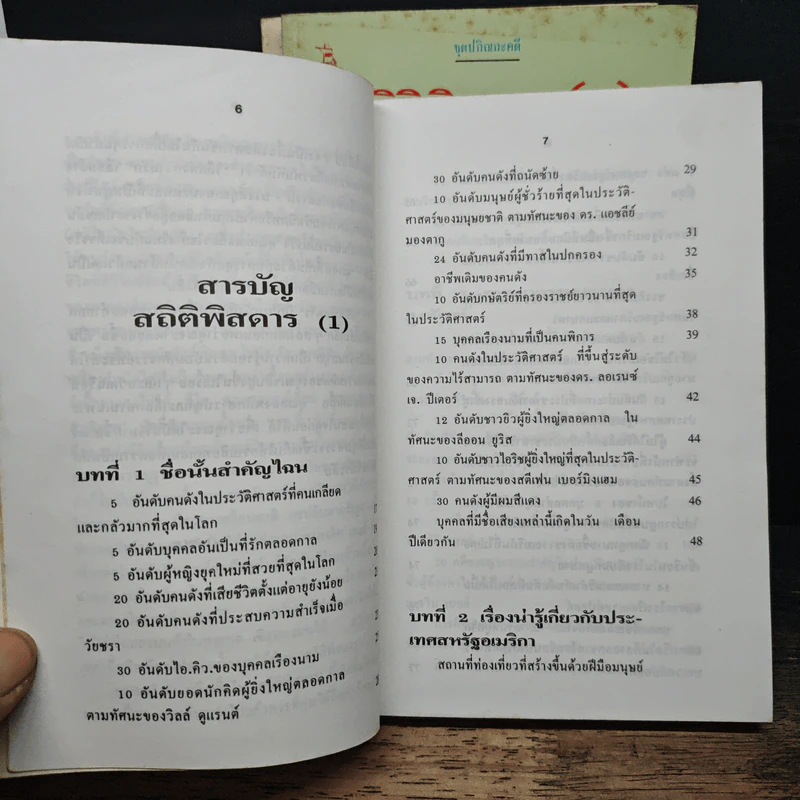 ชุดปกิณกะคดี
6
สารบัญ
สถิติพิสดาร (1)
บทที่ 1 ชื่อนั้นสำคัญไฉน
5 อันดับคนดังในประวัติศาสตร์ที่คนเกลียด
และกลัวมากที่สุดในโลก
5 อันดับบุคคลอันเป็นที่รักตลอดกาล
5 อันดับผู้หญิงยุคใหม่ที่สวยที่สุดในโลก
20 อันดับคนดังที่เสียชีวิตตั้งแต่อายุยังน้อย
20 อันดับคนดังที่ประสบความสำเร็จเมื่อ
วัยชรา
30 อันดับไอ.คิว.ของบุคคลเรืองนาม
10 อันดับยอดนักคิดผู้ยิ่งใหญ่ตลอดกาล
ตามทัศนะของวิลล์ ดูแรนต์
7
30 อันดับคนดังที่ถนัดซ้าย 29
10 อันดับมนุษย์ผู้ชั่วร้ายที่สุดในประวัติ-
ศาสตร์ของมนุษยชาติ ตามทัศนะของ ดร. แอชลีย์
มองตากู 31
24 อันดับคนดังที่มีทาสในปกครอง 32
อาชีพเดิมของคนดัง 35
10 อันดับกษัตริย์ที่ครองราชย์ยาวนานที่สุด
ในประวัติศาสตร์ 38
15 บุคคลเรืองนามที่เป็นคนพิการ 39
10 คนดังในประวัติศาสตร์ ที่ขึ้นสู่ระดับ
ของความไร้สามารถ ตามทัศนะของดร. ลอเรนซ์
เจ. ปีเตอร์ 42
12 อันดับชาวยิวผู้ยิ่งใหญ่ตลอดกาล ใน
ทัศนะของลีออน ยูริส 44
10 อันดับชาวไอริชผู้ยิ่งใหญ่ที่สุดในประวัติ-
ศาสตร์ ตามทัศนะของสตีเฟน เบอร์มิงแฮม 45
30 คนดังผู้มีผมสีแดง 46
บุคคลที่มีชื่อเสียงเหล่านี้เกิดในวัน เดือน
ปีเดียวกัน 48
บทที่ 2 เรื่องน่ารู้เกี่ยวกับประ-
เทศสหรัฐอเมริกา
สถานที่ท่องเที่ยวที่สร้างขึ้นด้วยฝีมือมนุษย์